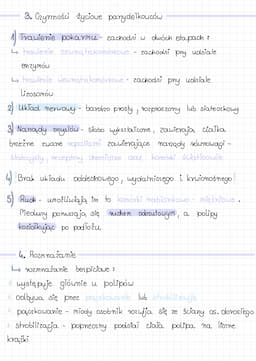 3. Czynności życiowe parzydełkowców
1) Trawienie pokarmu - zachodzi w dwóch etapach:
↳ trawienie zewnątrzkomórkowe - zachodzi przy udziale
enzymów
↳ trawienie wewnątrzkomórkowe - zachodzi przy udziale
lizosomów
2) Układ nerwowy - bardzo prosty, rozproszony lub siateczkowy
3) Narządy zmysłów - słabo wykształcone, zawierają ciałka
brzeżne zwane ropaliami zawierające narządy równowagi -
statocysty, receptory chemiczne oraz komórki światłoczułe.
4) Brak układu oddechowego, wydalniczego i krwionośnego!
5) Ruch - umożliwiają im to komórki nabłonkowo - mięśniowe.
Meduzy poruszają się ruchem odrzutowym, a polipy
koziołkując po podłożu.
4. Rozmnażanie
↳ rozmnażanie bezpłciowe:
występuje głównie u polipów
odbywa się przez pączkowanie lub strobilizację
pączkowanie - młody osobnik rozwija się ze ściany os. dorosłego
strobilizacja - poprzeczny podział ciała polipa na liczne
krążki